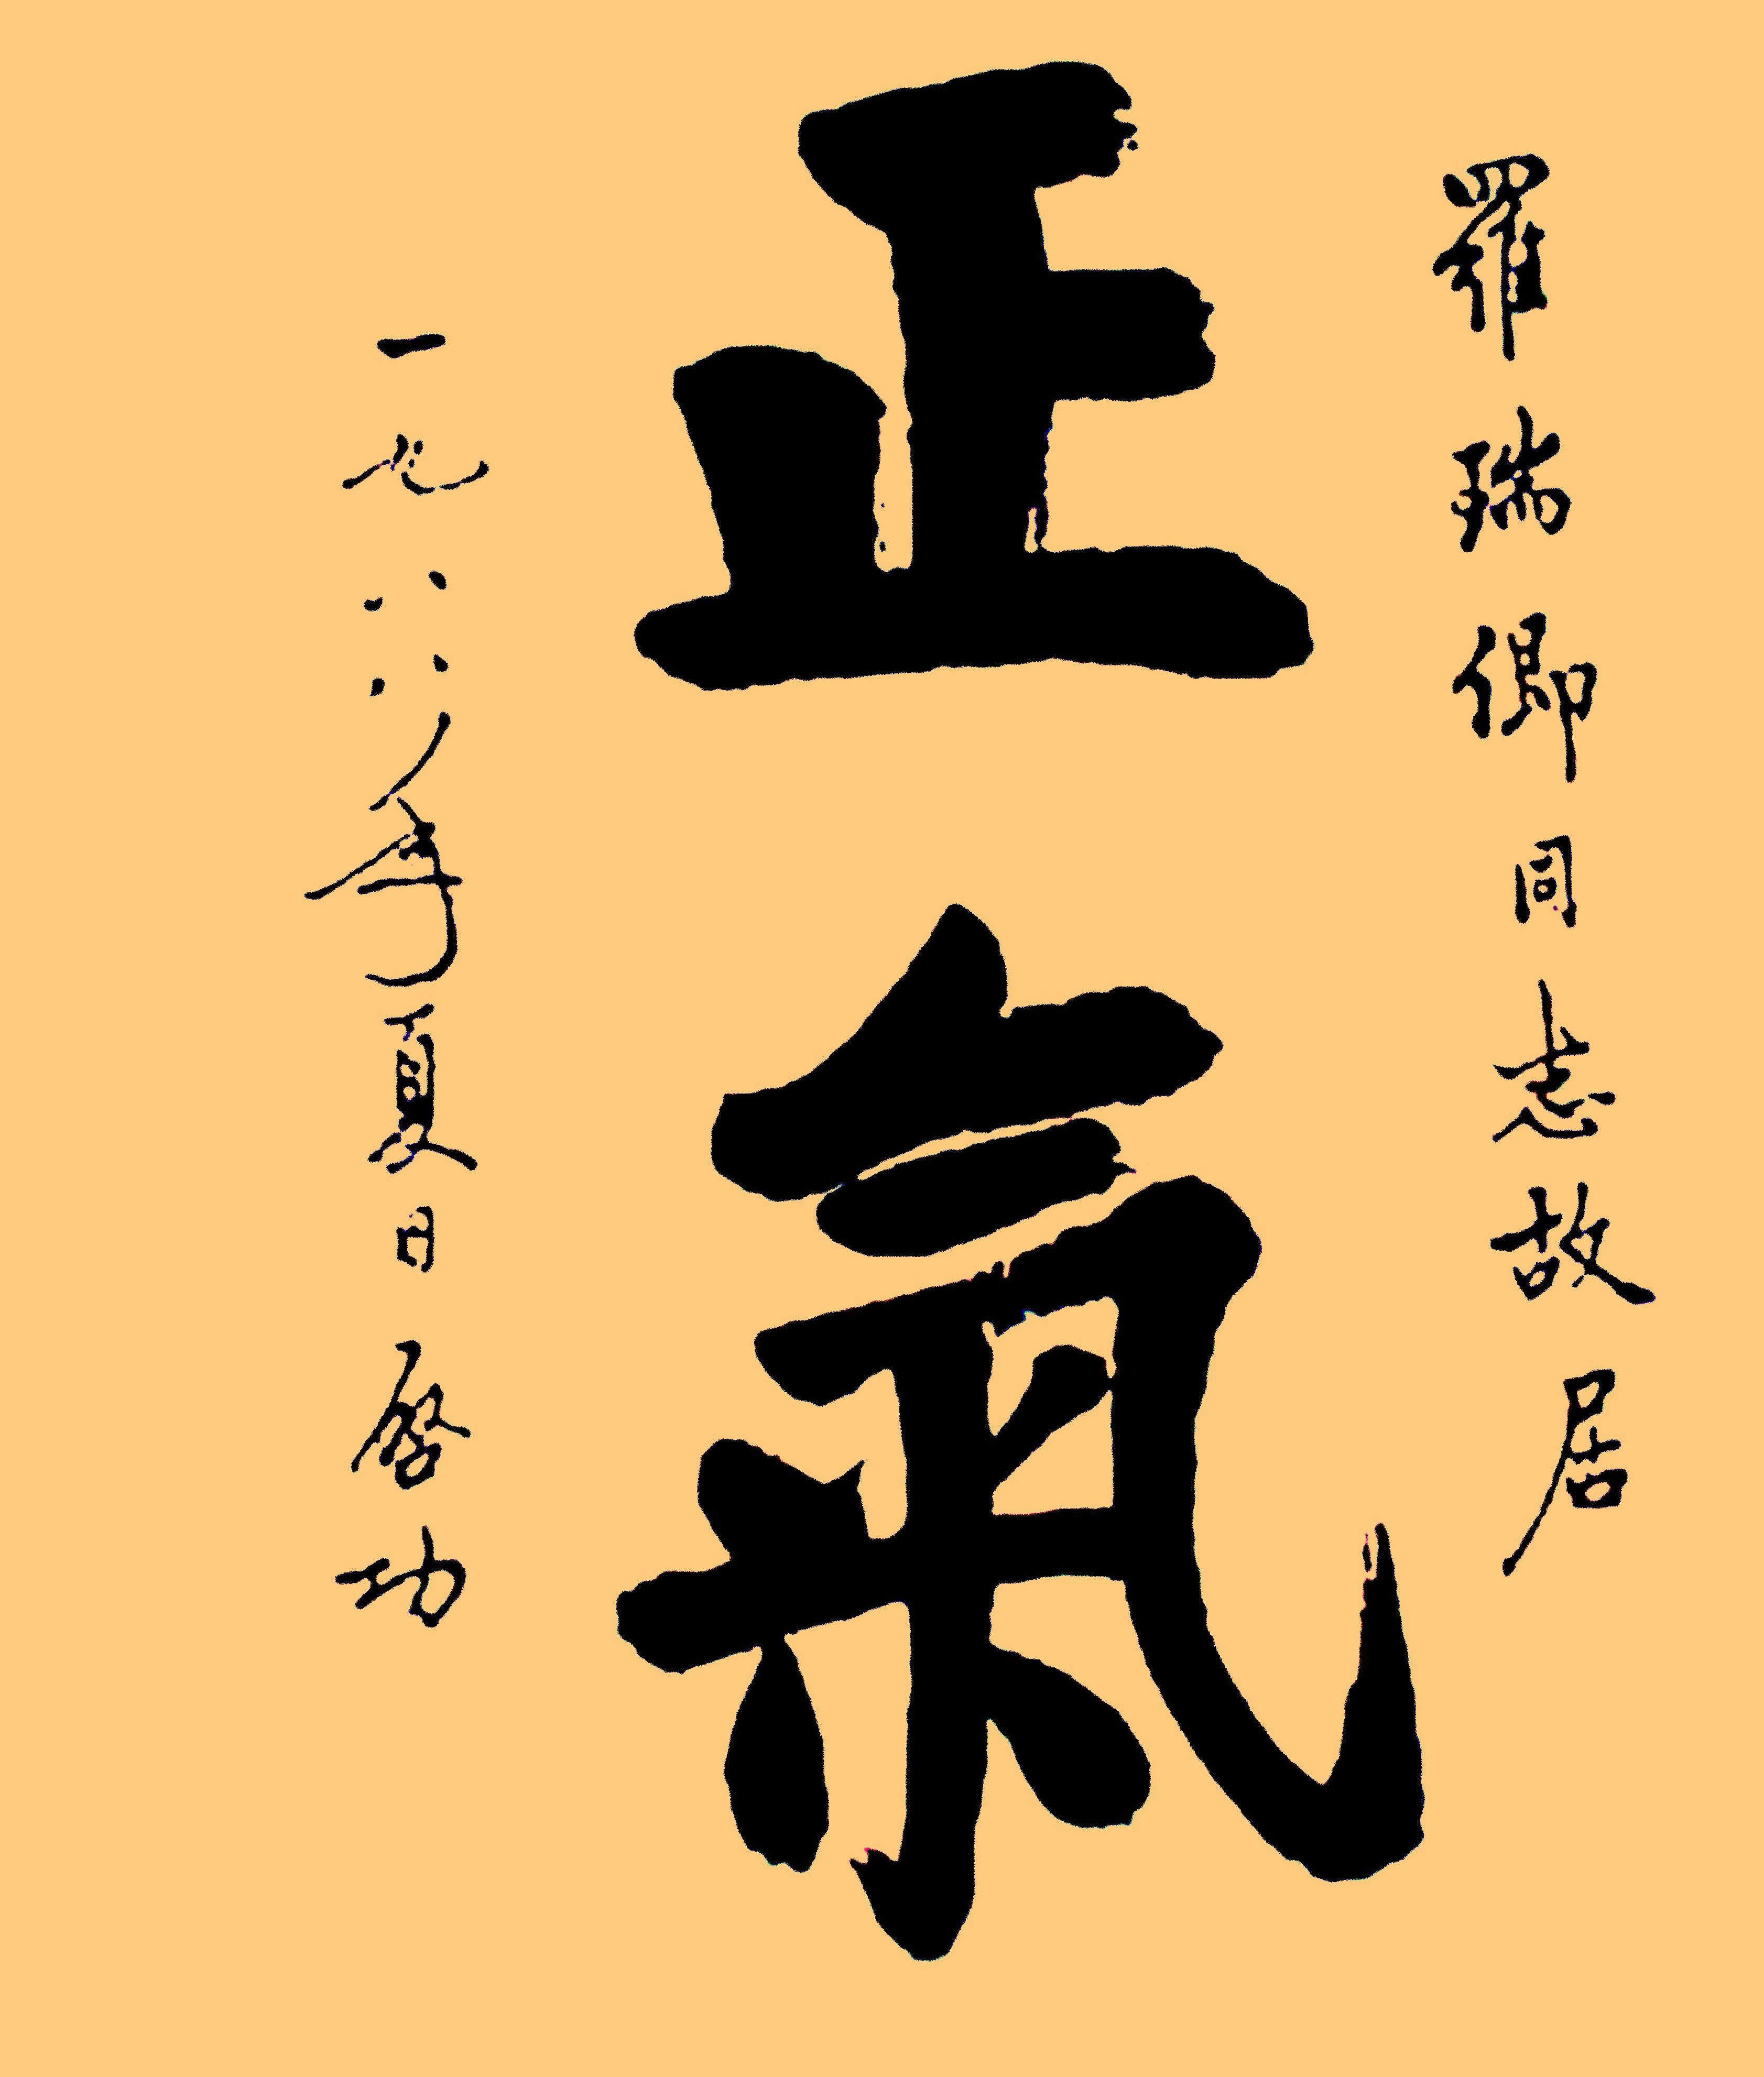 羅瑞卿同志故居
正氣
一九八八年夏日啓功